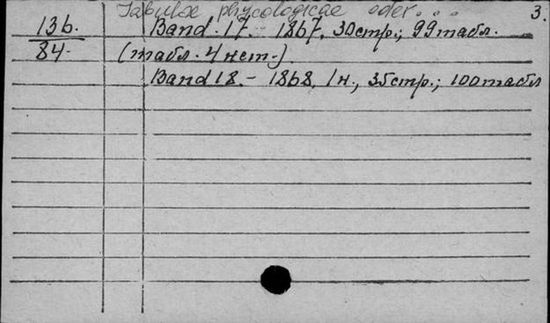 Tabulae phycologicae oder... 3.
136. Band. 17. - 1867, 30 стр.; 99 табл.
84. (табл. 4 нет.)
Band 18. - 1868, 1н., 35 стр.; 100 табл